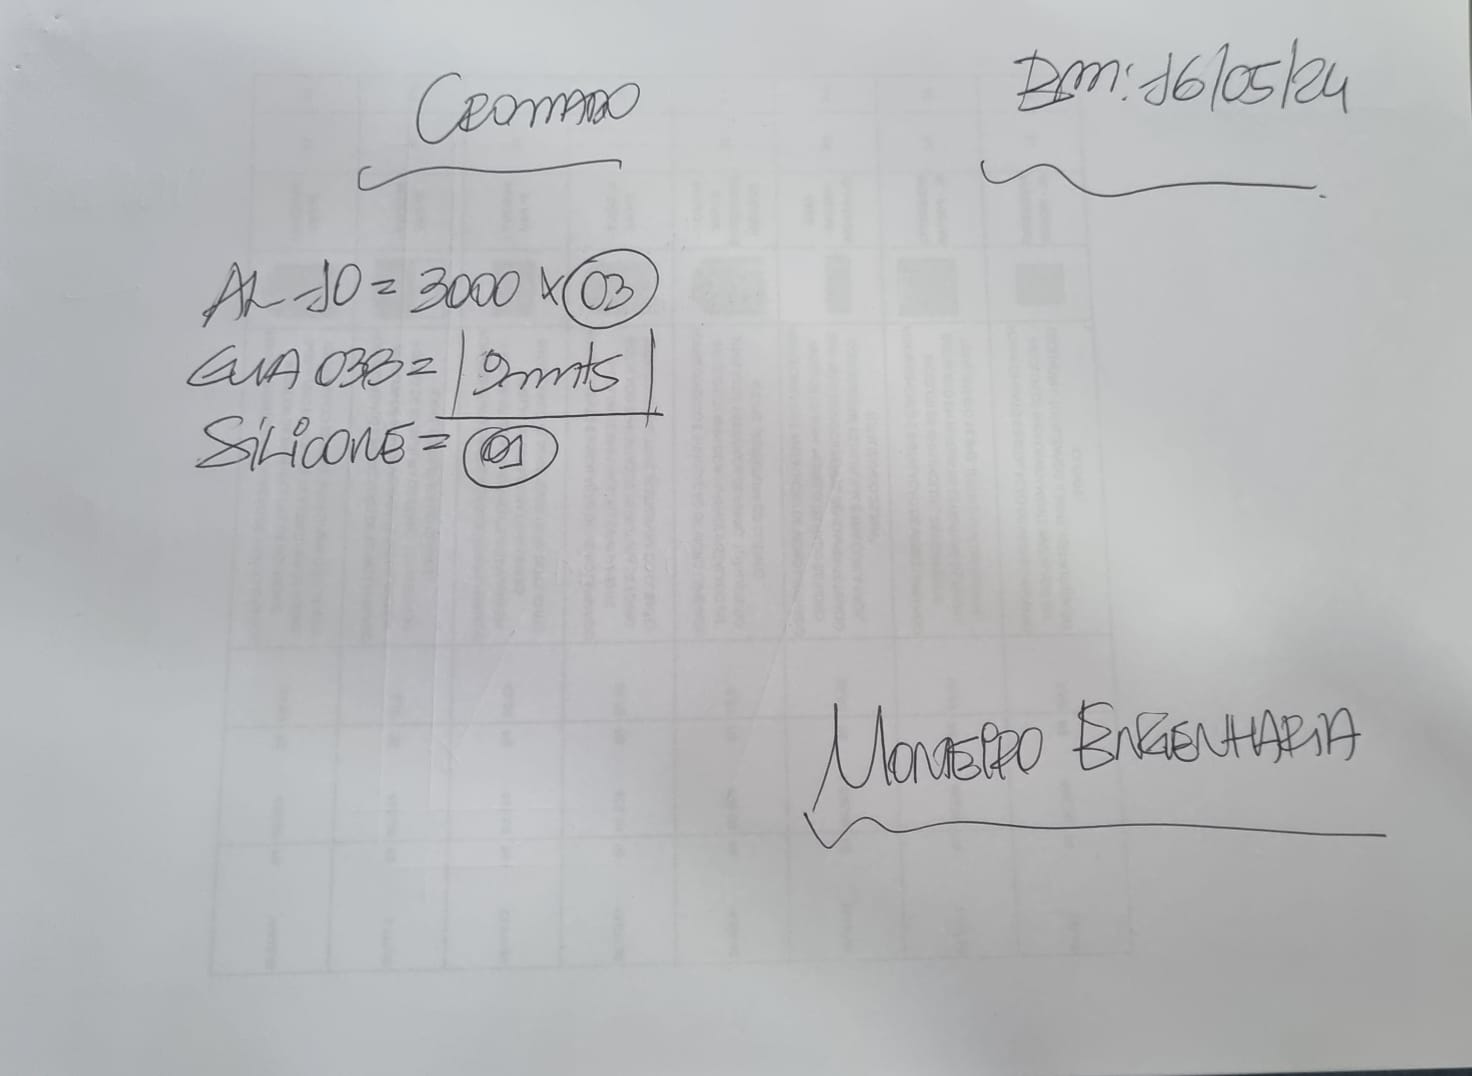 CROMADO
BM: 16/05/24
AL-10 = 3000 x 03
GUA 038 = 9mts
SILICONE = 01
MONTEIRO ENGENHARIA